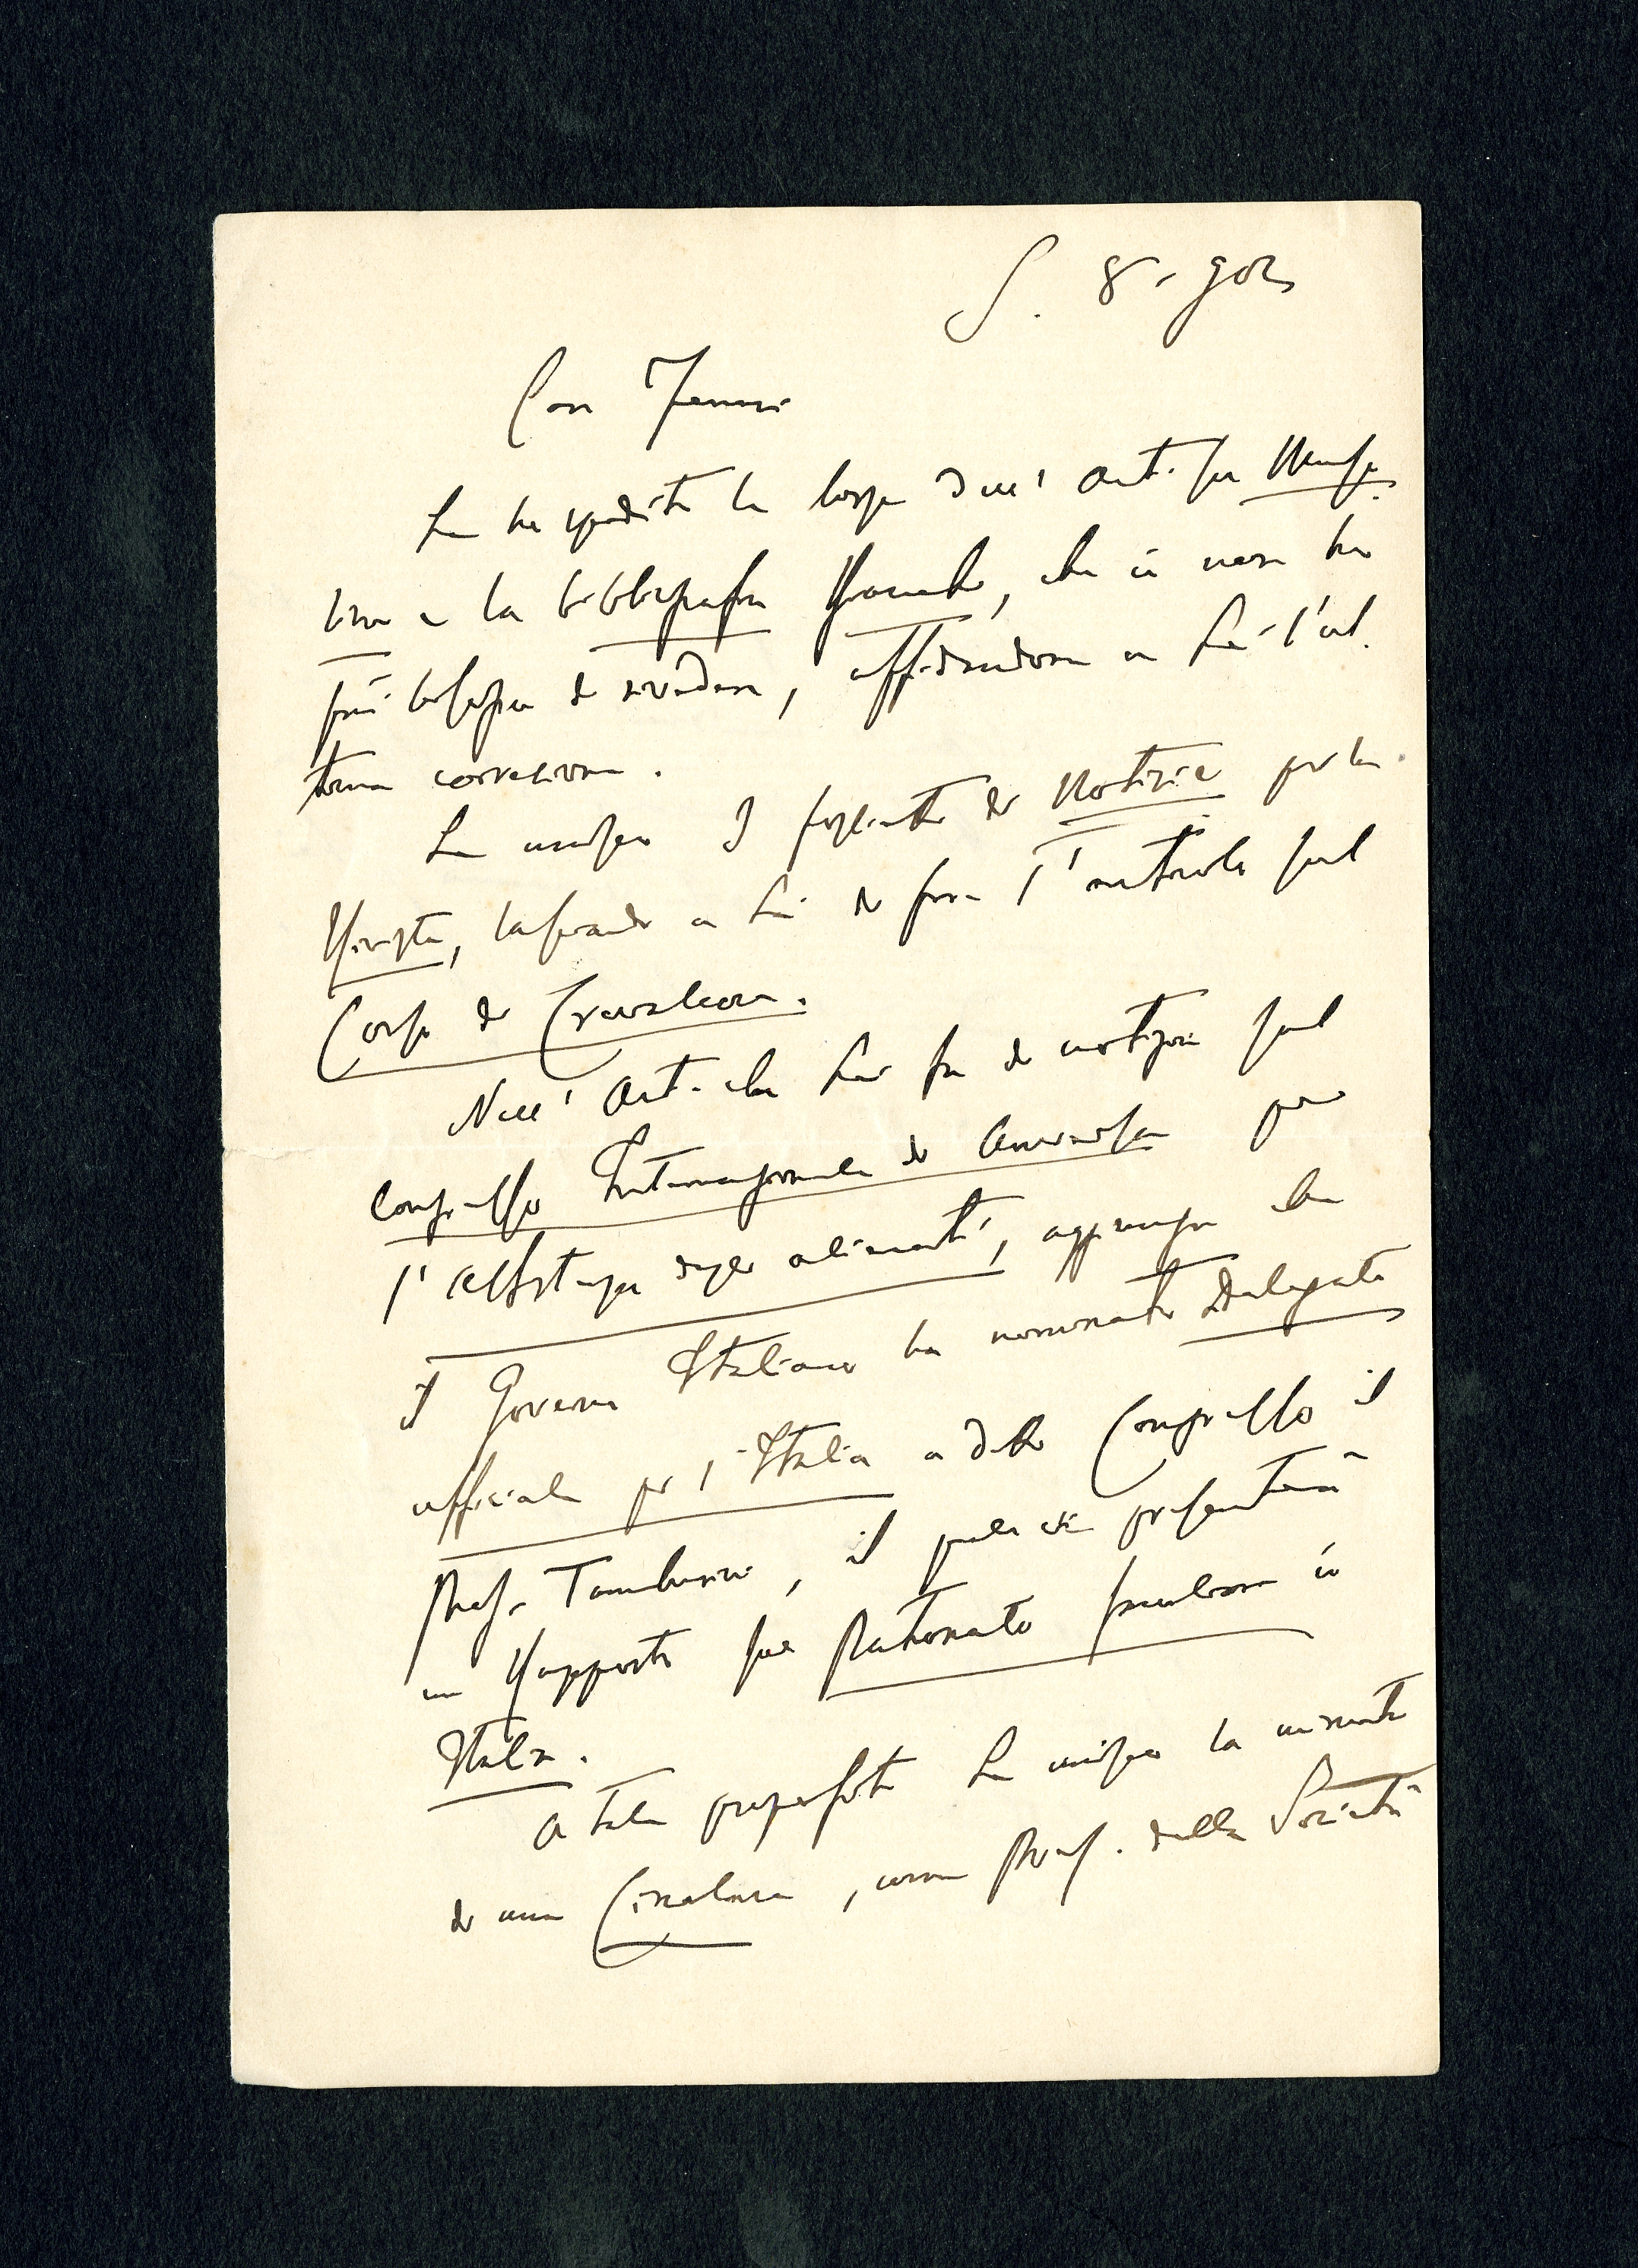 S. 8 - 902
Caro Ferrari
Le ho spedito le bozze dell' Art. su
e la bibliografia, che io non ho
più bisogno di rivedere, affidandone a Lei l'ul
tima correzione.
Le unisco I foglietto di Notizie per la
Rivista, lasciando a Lei di fare l'articolo sul
Corso di Craniologia.
Nell' Art. che Lei fa di notizia sul
Congresso Internazionale di Anversa per
l'Assistenza degli alienati, aggiunga che
il Governo Italiano ha nominato Delegato
ufficiale per l'Italia a detto Congresso il
Prof. Tamburini, il quale vi presenterà
un Rapporto sul Patronato familiare in
Italia.
A tale proposito Le unisco la minuta
di una Circolare, come Pres. della Società